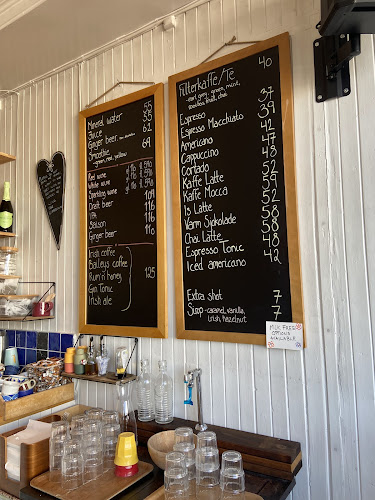 Mineral water 55
Juice 55
Ginger beer 62
Smoothie 69
-green, red, yellow
Red wine
White wine
Sparkling wine
Draft beer 109
IPA 116
Saison 116
Ginger beer 110
Irish coffee
Baileys coffee
Rum & honey 125
Gin Tonic
Irish ale
Filterkaffe/Te 40
-earl grey, green, mint,
rooibos, fruit, chai
Espresso 37
Espresso Macchiato 39
Americano 42
Cappuccino 47
Cortado 48
Kaffe Latte 52
Kaffe Mocca 59
Is Latte 52
Varm Sjokolade 58
Chai Latte 58
Espresso Tonic 48
Iced americano 42
Extra shot 7
Sirup -caramel, vanilla, 7
irish, hazelnut
MILK FREE
OPTIONS
AVAILABLE